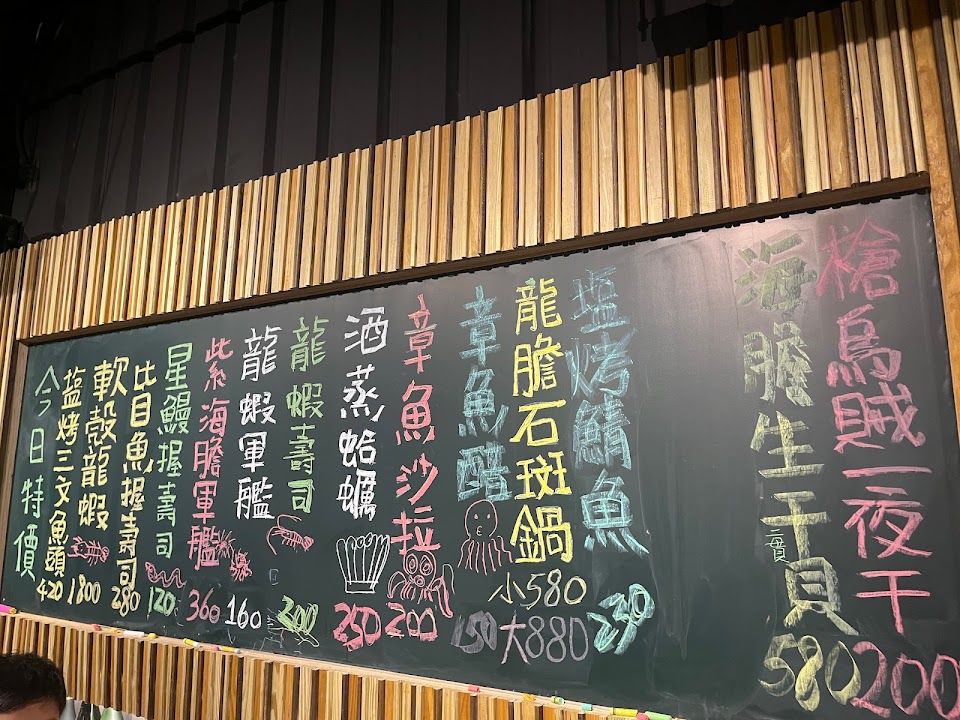 槍烏賊一夜干
200
海膽生干貝
二貫
580
塩烤鯖魚
230
龍膽石斑鍋
小580
大880
章魚醋
150
章魚沙拉
200
酒蒸蛤蠣
250
龍蝦壽司
200
龍蝦軍艦
160
紫海膽軍艦
360
星鰻握壽司
120
比目魚握壽司
280
軟殼龍蝦
1800
塩烤三文魚頭
420
今日特價